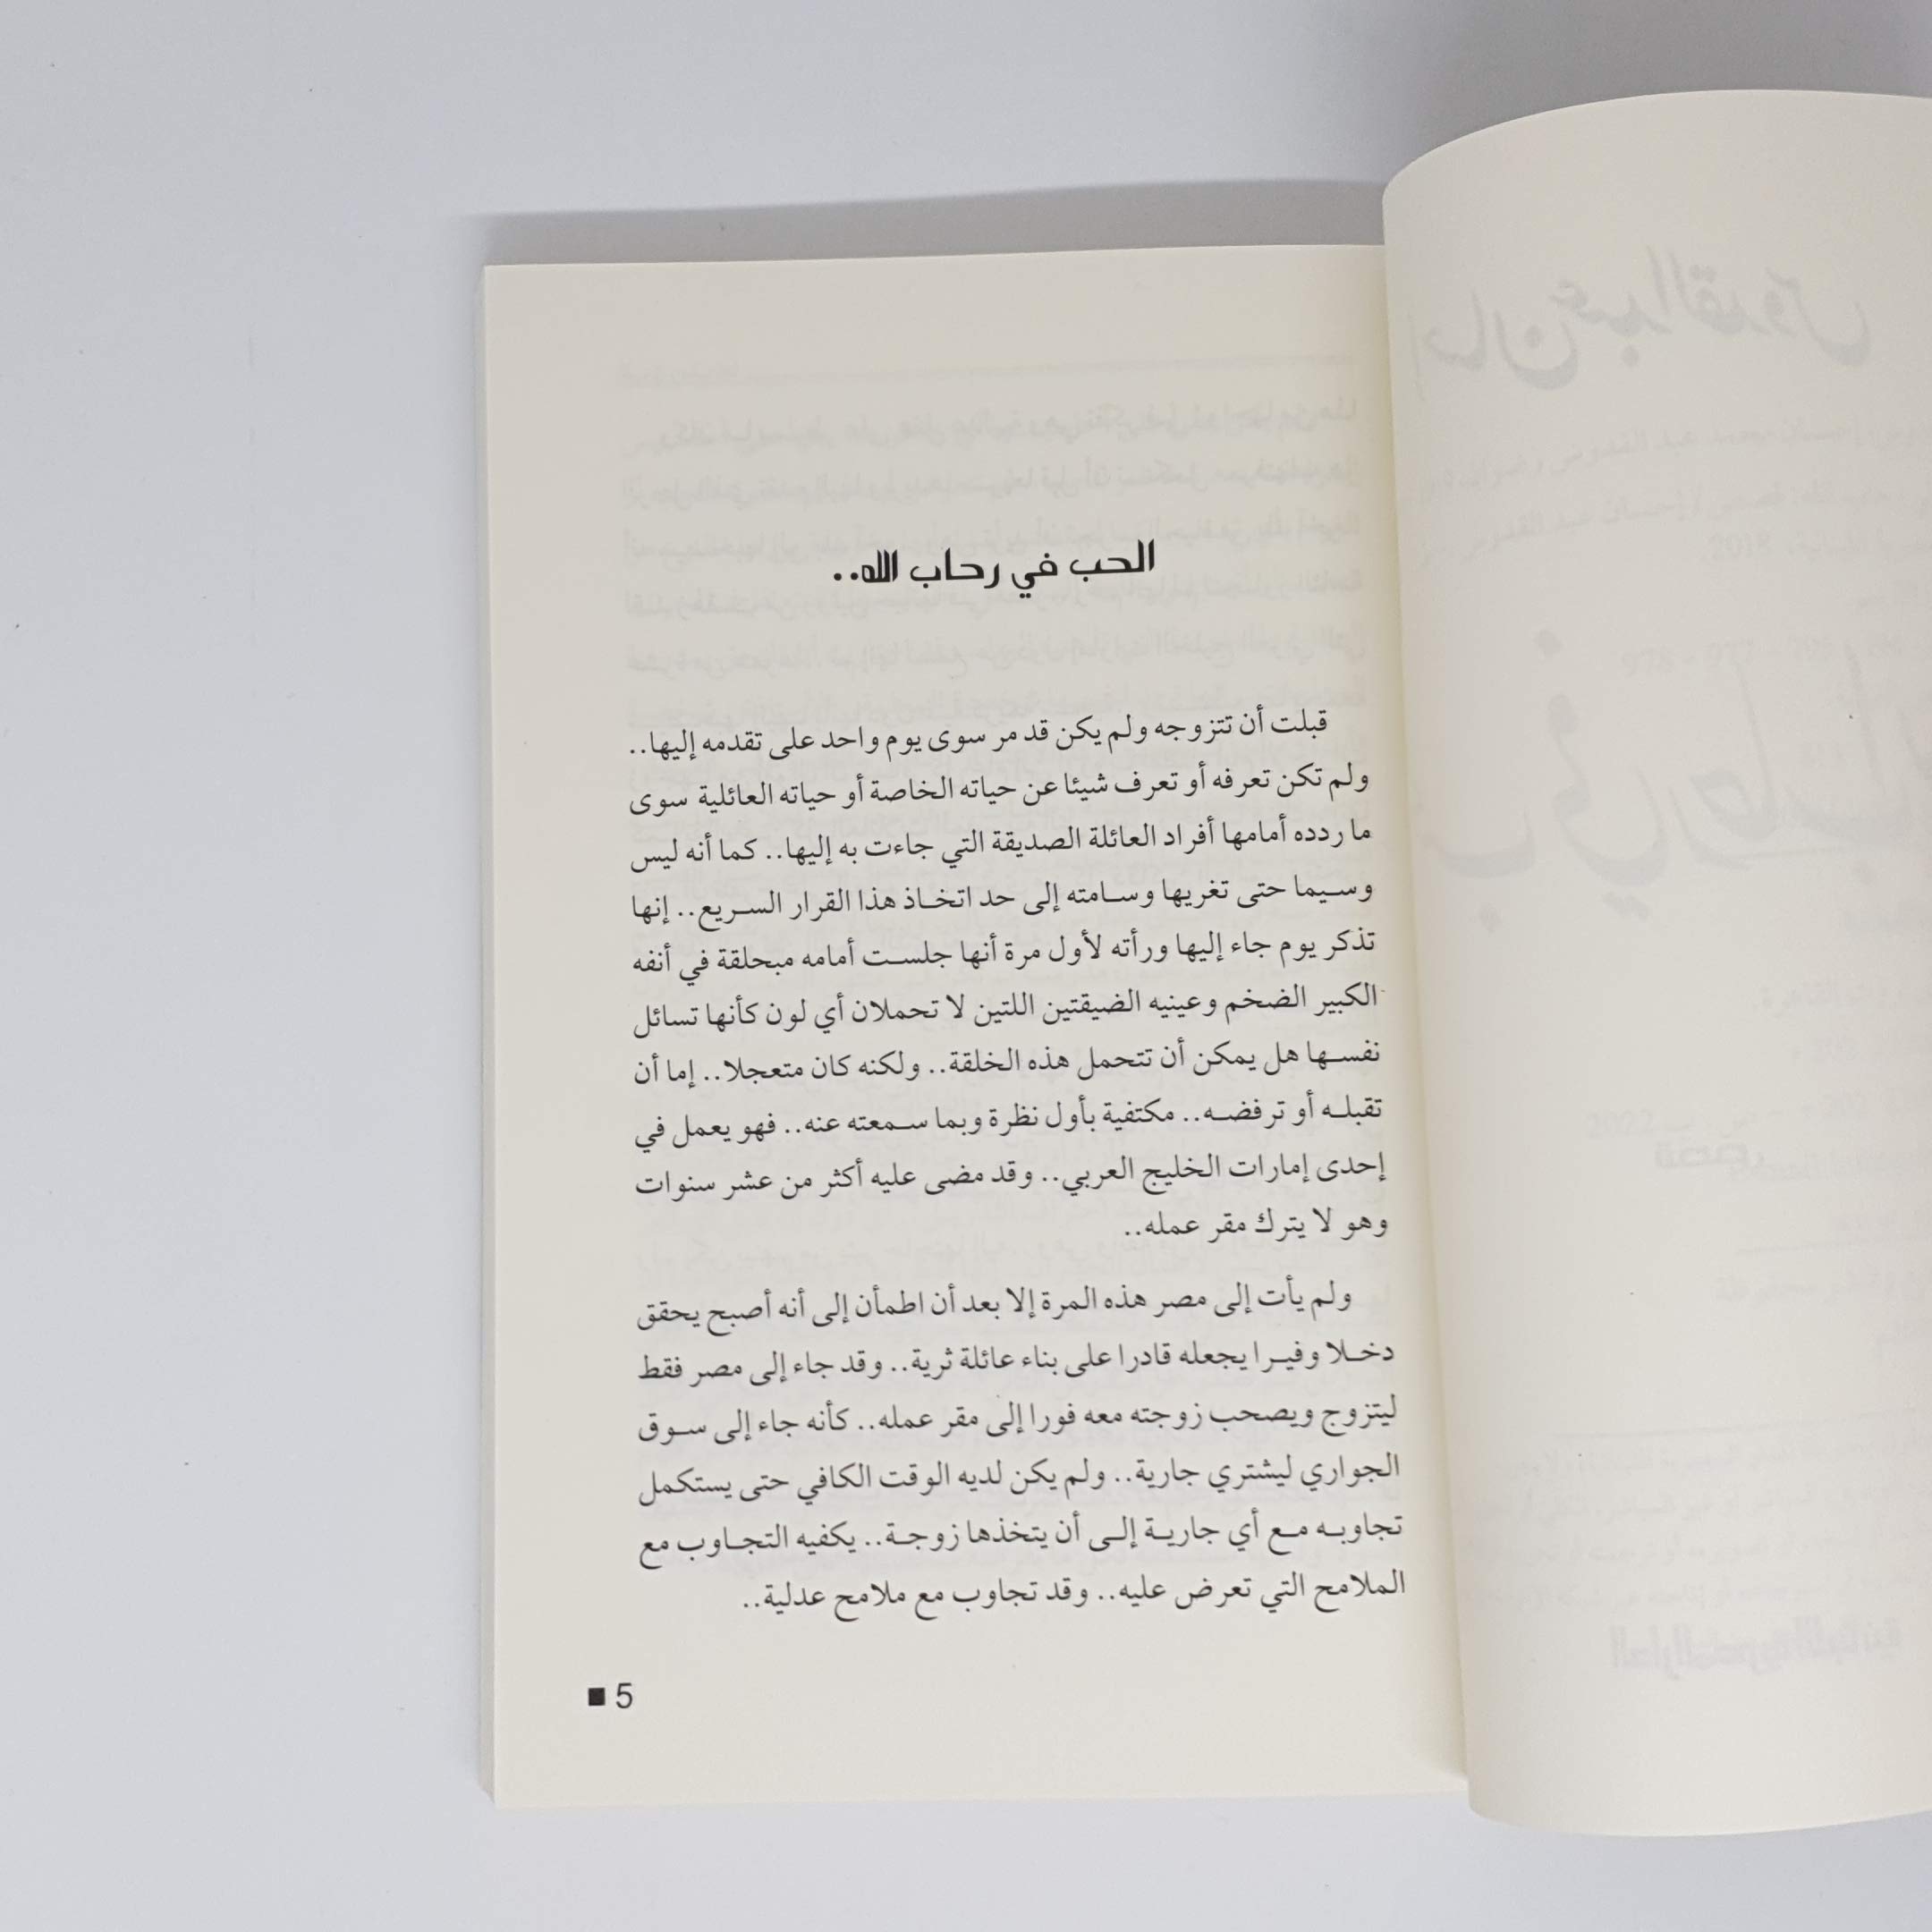 الحب في رحاب الله..
قبلت أن تتزوجه ولم يكن قد مر سوى يوم واحد على تقدمه إليها..
ولم تكن تعرفه أو تعرف شيئا عن حياته الخاصة أو حياته العائلية سوى
ما ردده أمامها أفراد العائلة الصديقة التي جاءت به إليها.. كما أنه ليس
وسيما حتى تغريها وسامته إلى حد اتخاذ هذا القرار السريع.. إنها
تذكر يوم جاء إليها ورأته لأول مرة أنها جلست أمامه مبحلقة في أنفه
الكبير الضخم وعينيه الضيقتين اللتين لا تحملان أي لون كأنها تسائل
نفسها هل يمكن أن تتحمل هذه الخلقة.. ولكنه كان متعجلا.. إما أن
تقبله أو ترفضه.. مكتفية بأول نظرة وبما سمعته عنه.. فهو يعمل في
إحدى إمارات الخليج العربي.. وقد مضى عليه أكثر من عشر سنوات
وهو لا يترك مقر عمله..
ولم يأت إلى مصر هذه المرة إلا بعد أن اطمأن إلى أنه أصبح يحقق
دخلا وفيرا يجعله قادرا على بناء عائلة ثرية.. وقد جاء إلى مصر فقط
ليتزوج ويصحب زوجته معه فورا إلى مقر عمله.. كأنه جاء إلى سوق
الجواري ليشتري جارية.. ولم يكن لديه الوقت الكافي حتى يستكمل
تجاوبه مع أي جارية إلى أن يتخذها زوجة.. يكفيه التجاوب مع
الملامح التي تعرض عليه.. وقد تجاوب مع ملامح عدلية..
5